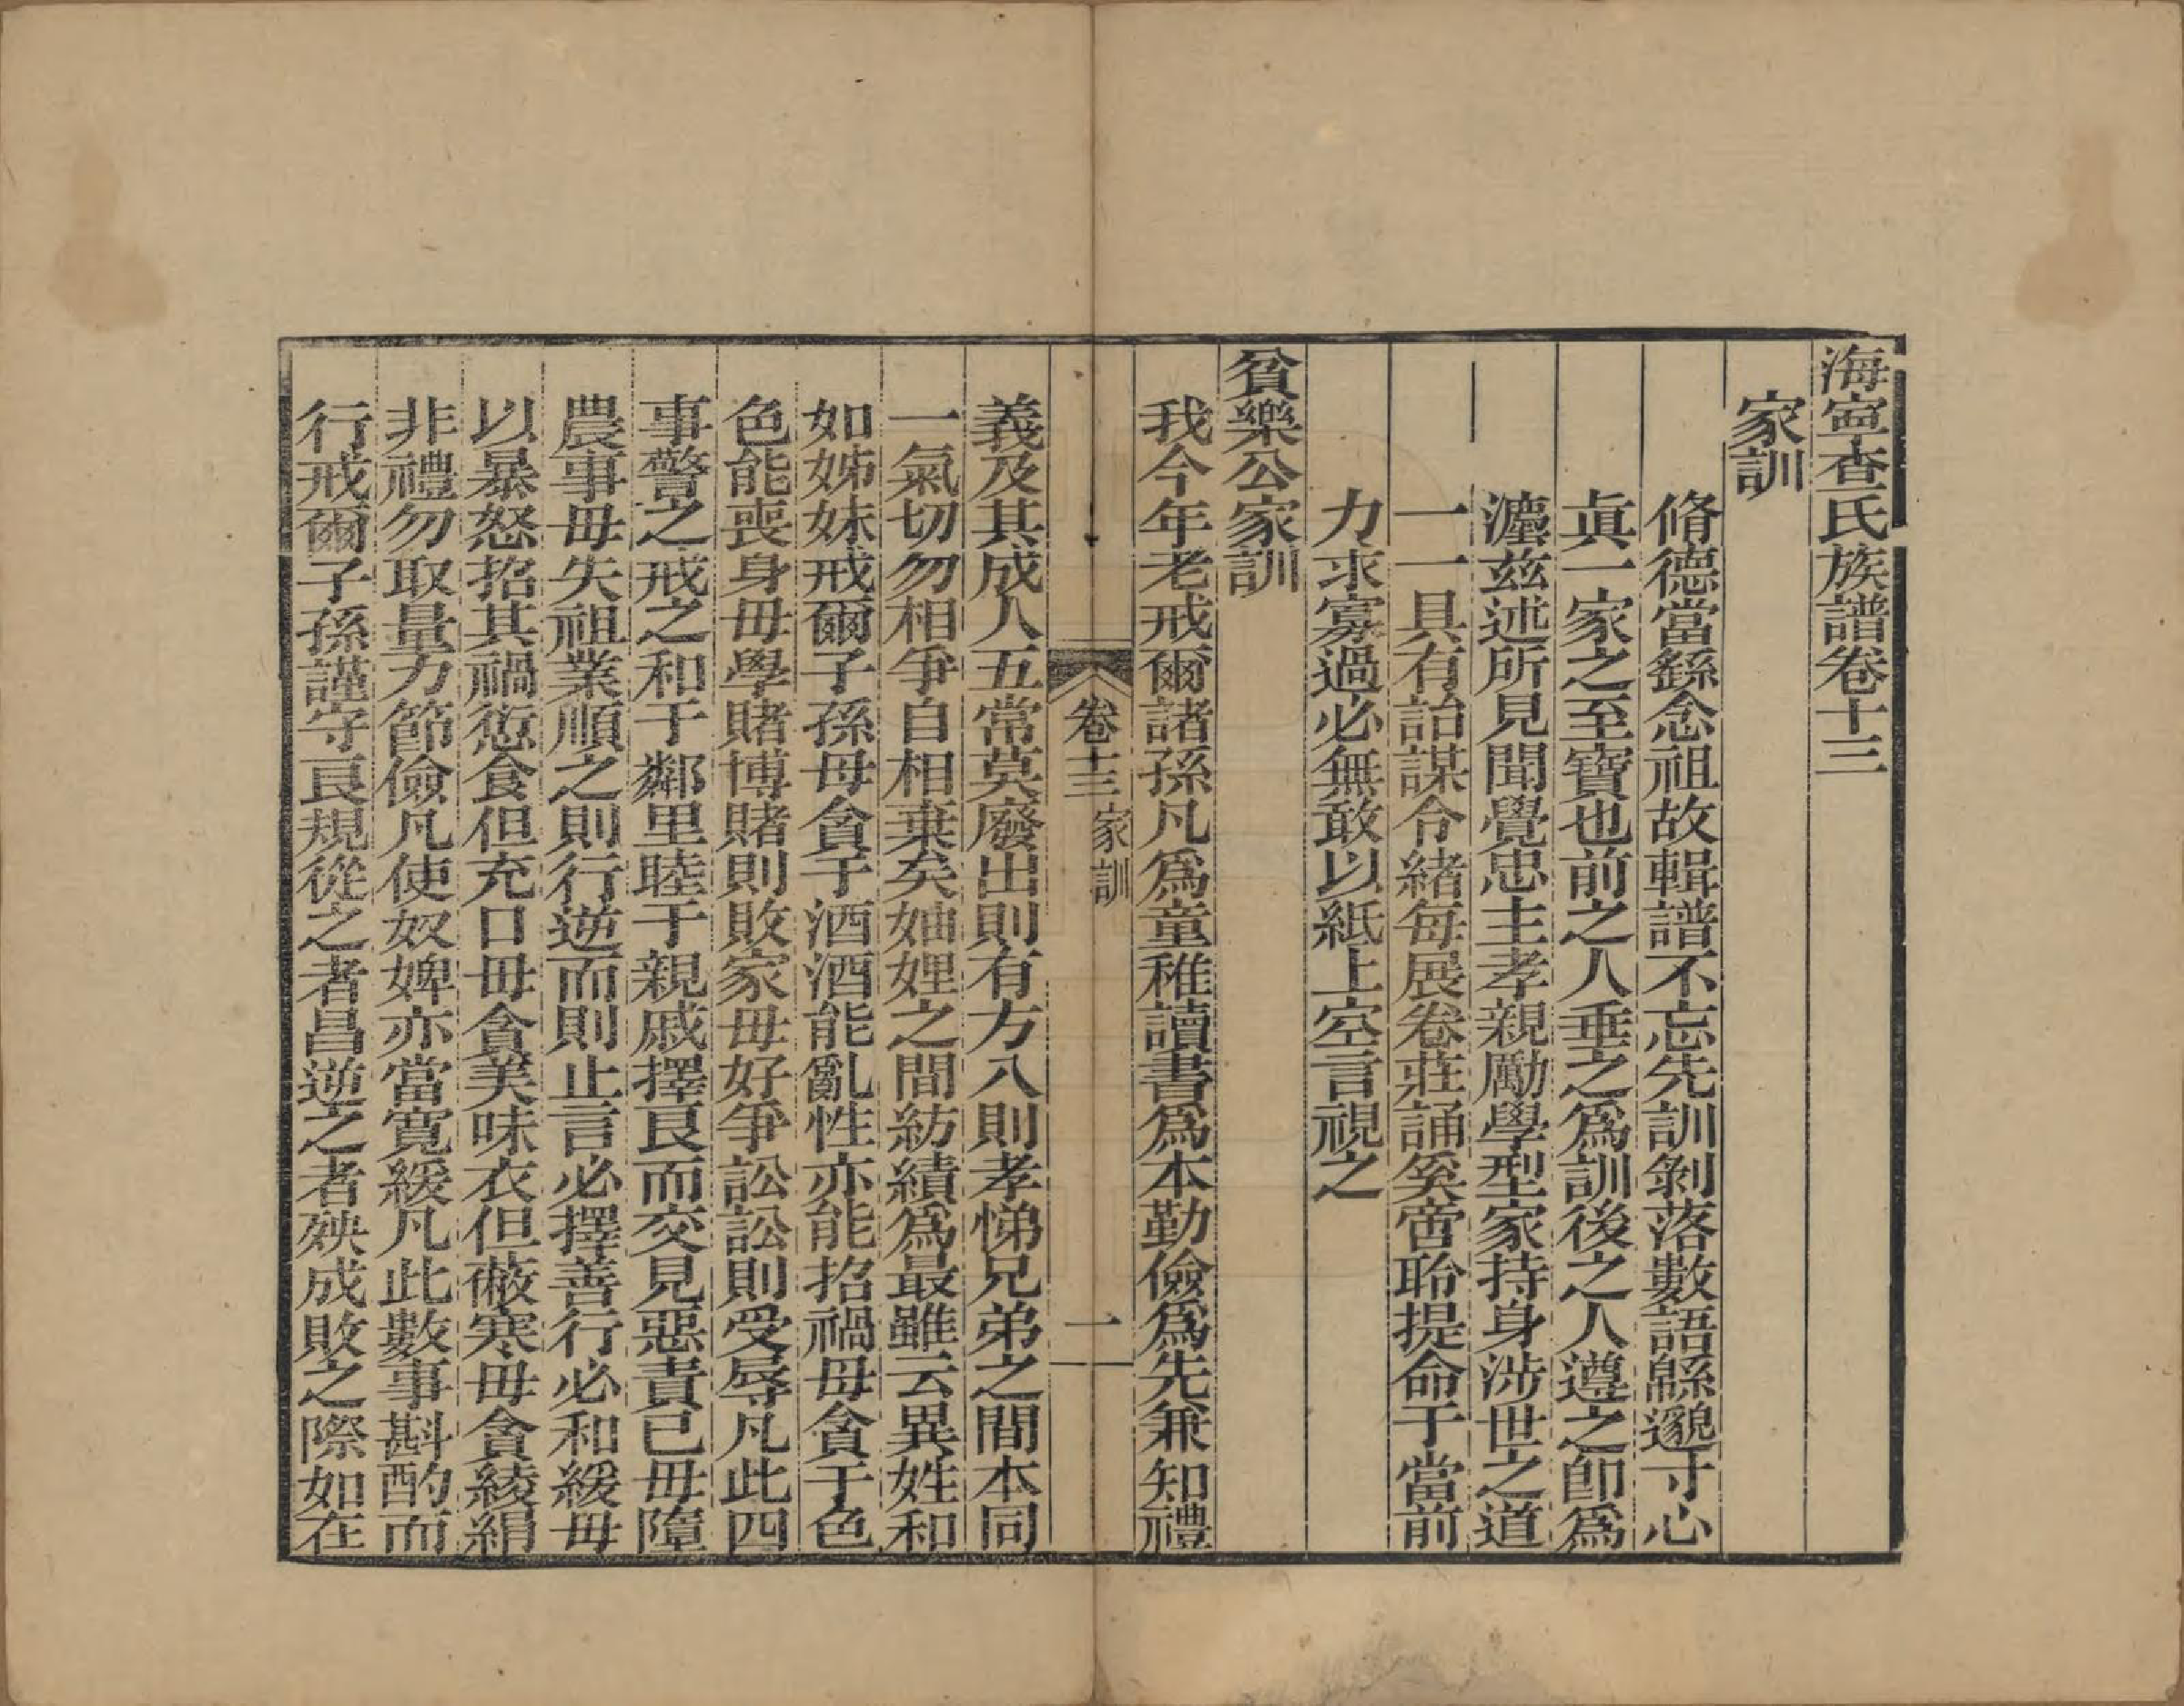 海寧查氏族譜卷十三
家訓
脩德當繇念祖故輯譜不忘先訓剝落數語緜邈寸心
眞一家之至寶也前之人垂之爲訓後之人遵之卽爲
灋玆述所見聞覺忠主孝親勵學型家持身涉世之道
一一具有詒謀令緒每展卷莊誦奚啻聆提命于當前
力求寡過必無敢以紙上空言視之
貧樂公家訓
我今年老戒爾諸孫凡爲童稚讀書爲本勤儉爲先兼知禮
卷十三 家訓 一
義及其成人五常莫廢出則有方入則孝悌兄弟之間本同
一氣切勿相爭自相棄矣妯娌之間紡績爲最雖云異姓和
如姊妹戒爾子孫毋貪于酒酒能亂性亦能招禍毋貪于色
色能喪身毋學賭博賭則敗家毋好爭訟訟則受辱凡此四
事警之戒之和于鄰里睦于親戚擇良而交見惡責已毋隳
農事毋失祖業順之則行逆而則止言必擇善行必和緩毋
以暴怒招其禍愆食但充口毋貪美味衣但蔽寒毋貪綾絹
非禮勿取量力節儉凡使奴婢亦當寬緩凡此數事斟酌而
行戒爾子孫謹守良規從之者昌逆之者殃成敗之際如在